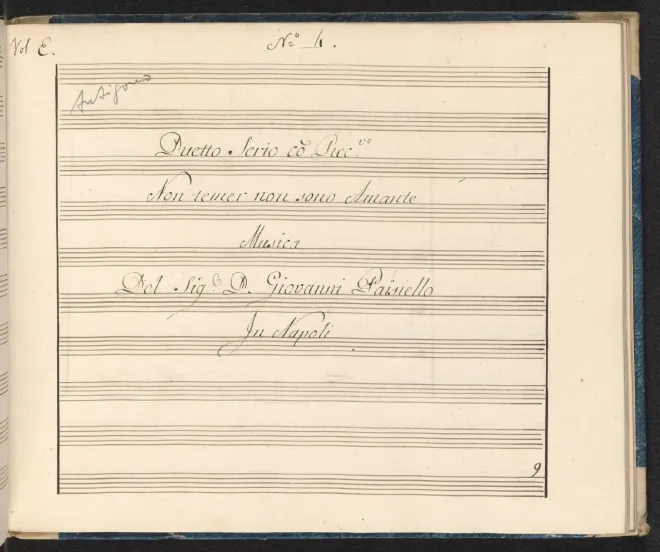 Vol E.
Nº 4.
Antigono
Duetto Serio cõ Rec.vo
Non temer non sono Amante
Musica
Del Sig.r D. Giovanni Paisiello
In Napoli
9